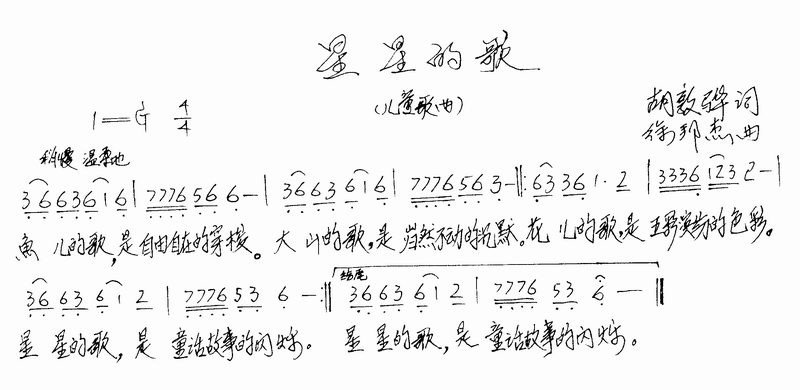 星星的歌
(儿童歌曲)
1=G 4/4
胡敦骅词
徐邦杰曲
稍慢 温柔地
3663616 | 777656 6- | 3663 616 | 777656 3- ‖: 6336 1· 2 | 3336 123 2- |
鱼儿的歌,是自由自在的穿梭。大山的歌,是岿然不动的沉默。花儿的歌,是五彩缤纷的色彩。
结尾
3663 61 2 | 777653 6 - :‖ 3663 61 2 | 7776 53 6 - ‖
星星的歌,是童话故事的闪烁。 星星的歌,是童话故事的闪烁。